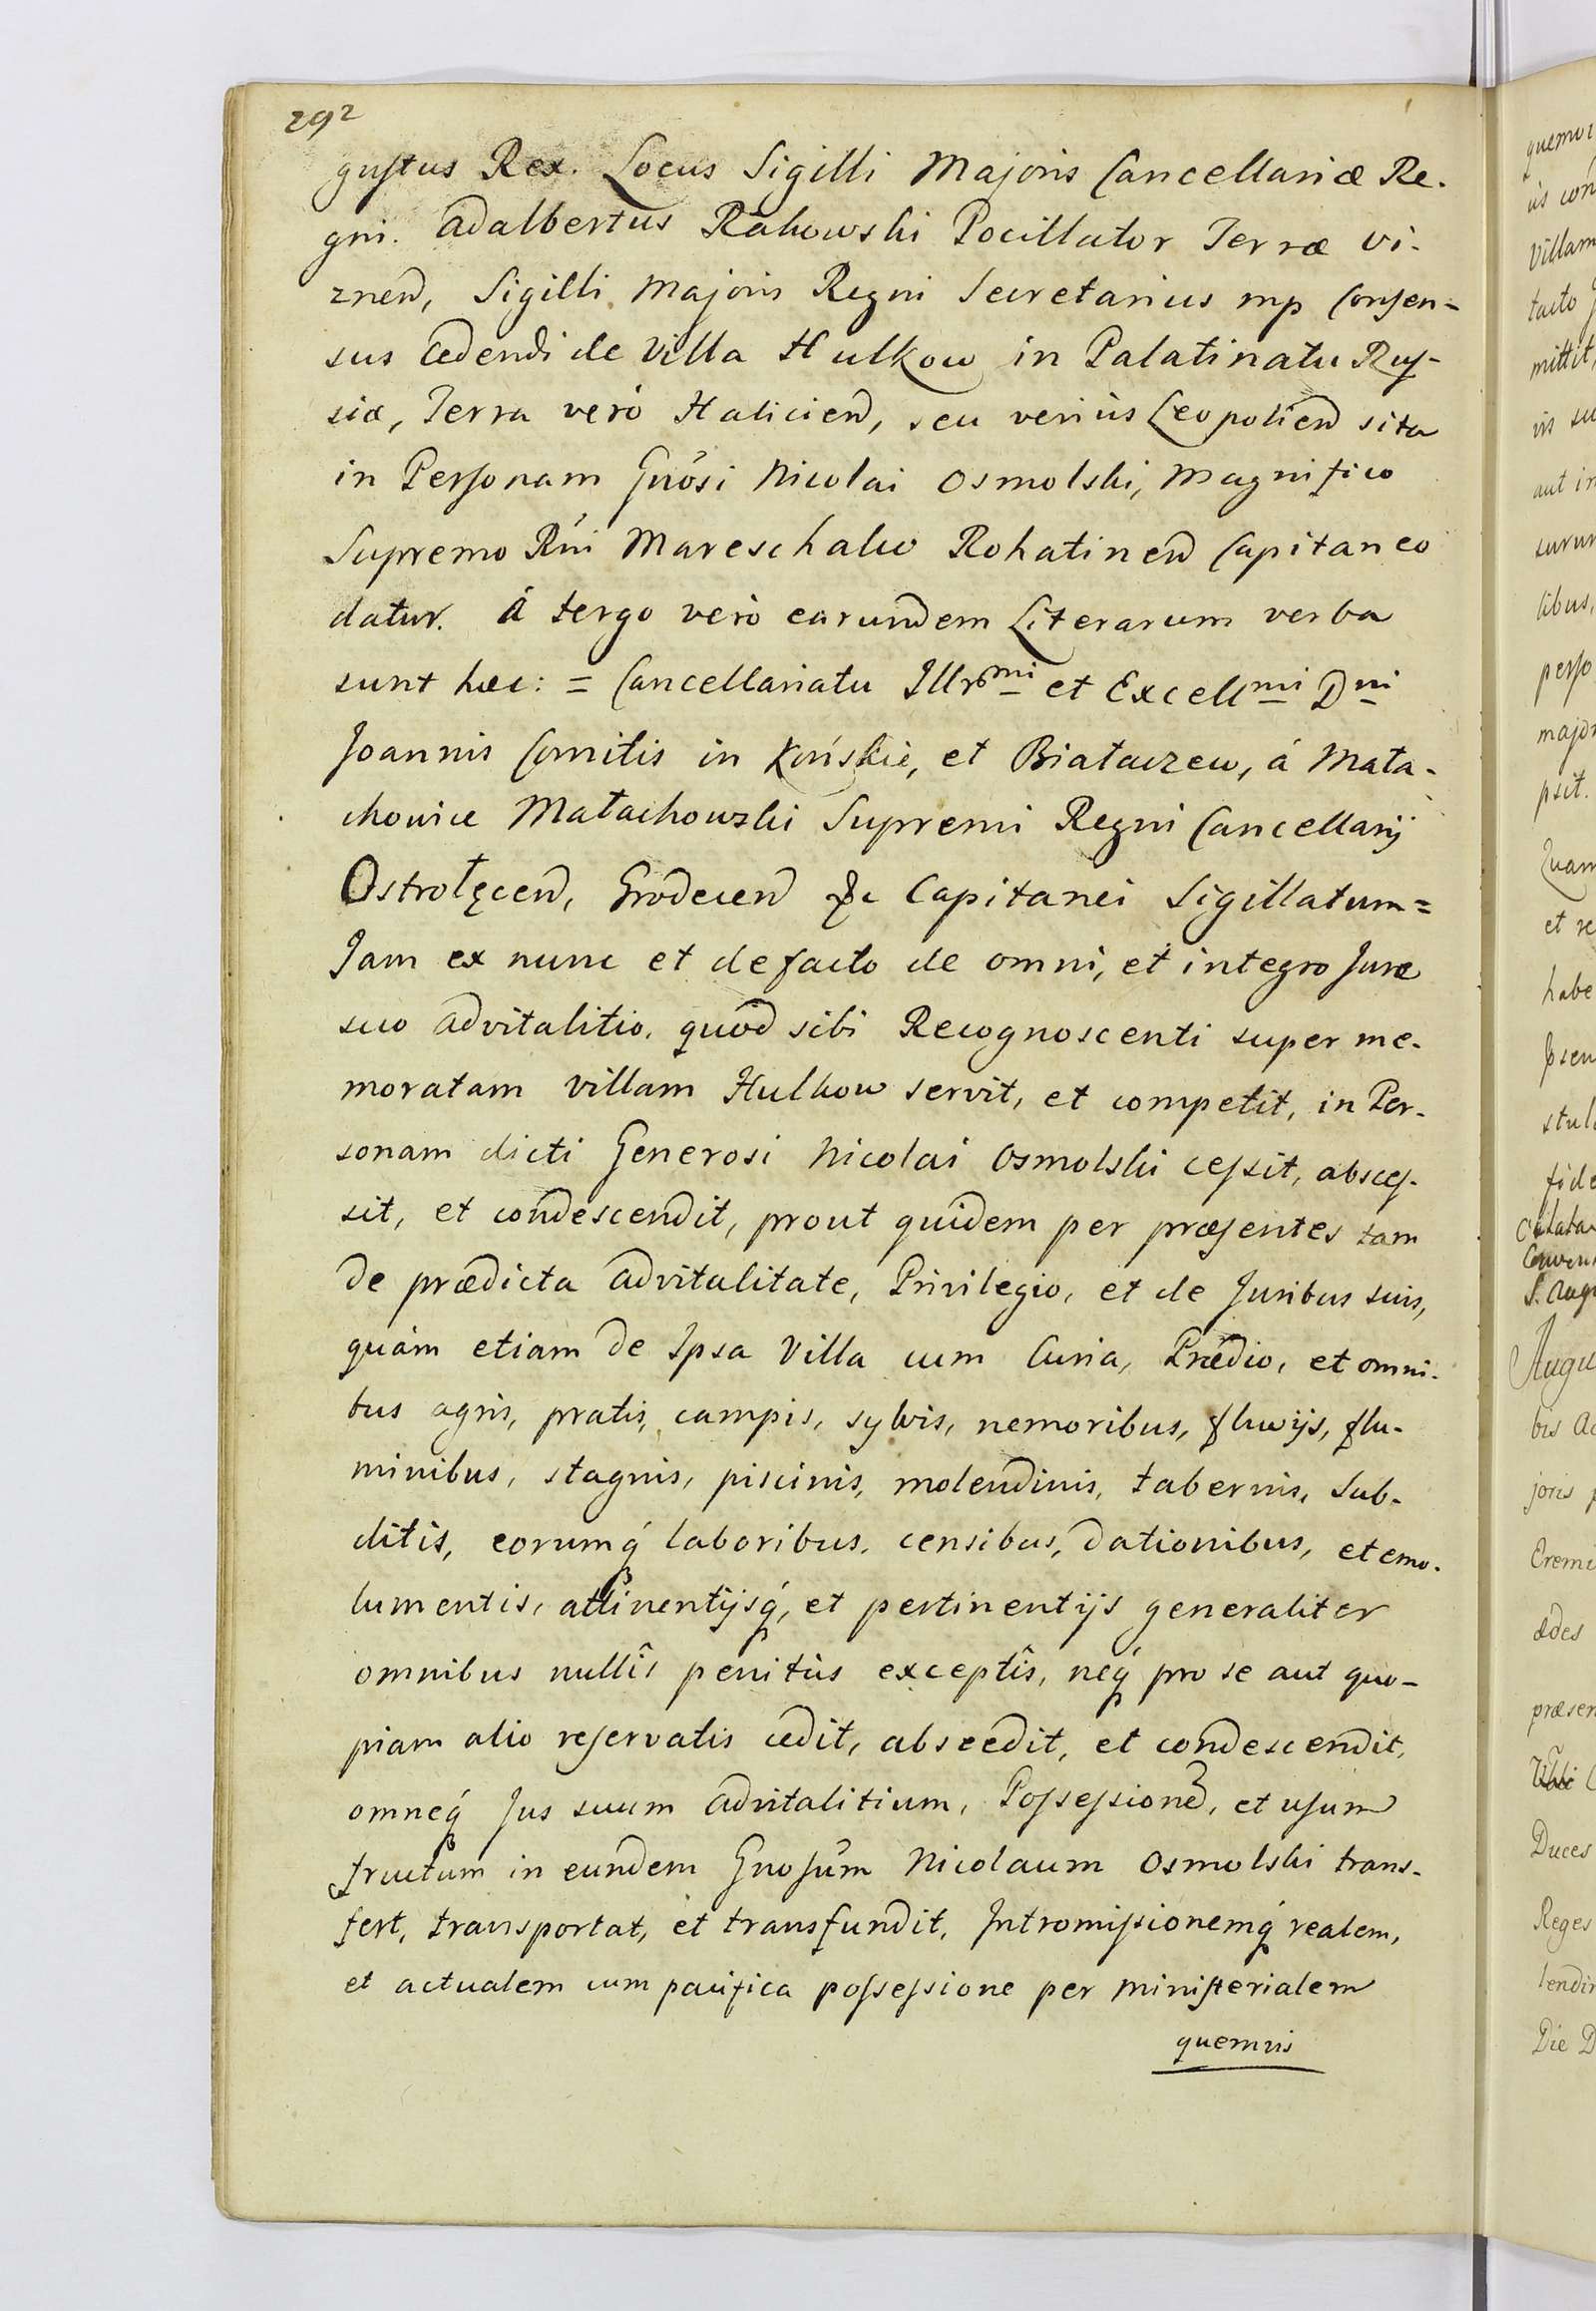 292
gustus Rex. Locus Sigilli Majoris Cancellariæ Re-
gni. Adalbertus Rakowski Pocillator Terræ Vi-
znen, Sigilli Majoris Regni Secretarius mp Consen-
sus Cedendi de Villa Hulkow in Palatinatu Rus-
siæ, Terra verò Halicien, seu veriùs Leopolien sita
in Personam Gnōsi Nicolai Osmolski, Magnifico
Supremo Rni Mareschalco Rohatinen Capitaneo
datur. à tergo verò earundem Literarum verba
sunt hæc: = Cancellariatu Illrmi et Excellmi Dni
Joannis Comitis in Końskie, et Białaczew, á Mała-
chowice Małachowski Supremi Regni Cancellarij
Ostrołęcen, Grodecen &c Capitanei Sigillatum =
Jam ex nunc et de facto de omni, et integro Jure
suo advitalitio, quod sibi Recognoscenti super me-
moratam villam Hulkow servit, et competit, in Per-
sonam dicti Generosi Nicolai Osmolski cessit, absces-
sit, et condescendit, prout quidem per præsentes tam
de prædicta advitalitate, Privilegio, et de Juribus suis,
quàm etiam de Ipsa Villa cum Curia, Prædio, et omni-
bus agris, pratis, campis, sylvis, nemoribus, fluvijs, flu-
minibus, stagnis, piscinis, molendinis, tabernis, Sub-
ditis, eorumq́ laboribus, censibus, dationibus, et emo-
lumentis, attinentijsq́, et pertinentijs generaliter
omnibus nullîs penitùs exceptîs, neq́ pro se aut quo-
piam alio reservatis cedit, abscedit, et condescendit,
omneq́ Jus suum advitalitium, Possessionē, et usum
fructum in eundem Gnosum̄ Nicolaum Osmolski trans-
fert, transportat, et transfundit, Intromissionemq́ realem,
et actualem cum pacifica possessione per Ministerialem
quemvis
villam
tacto
mittit,
aut in
libus,
perso
psit.
Quam
et re
habe
fide
S. Aug
Augu
joris
Eremi
ædes
præsen
Duces
Reges
Die D